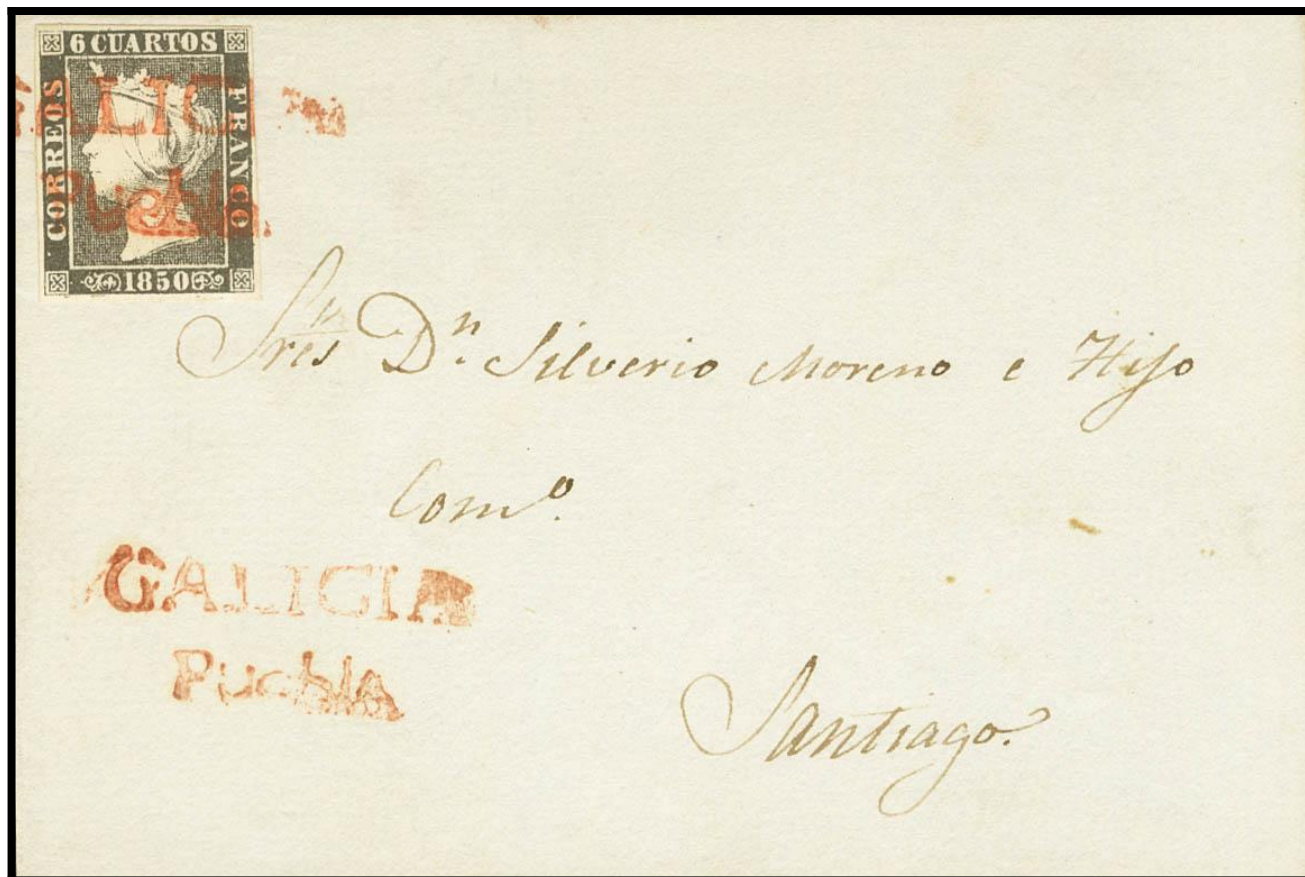 6 CUARTOS
CORREOS
FRANCO
GALICIA
Puebla.
1850
Sres Dn. Silverio Moreno e Hijo
Como.
GALICIA
Puebla
Santiago.